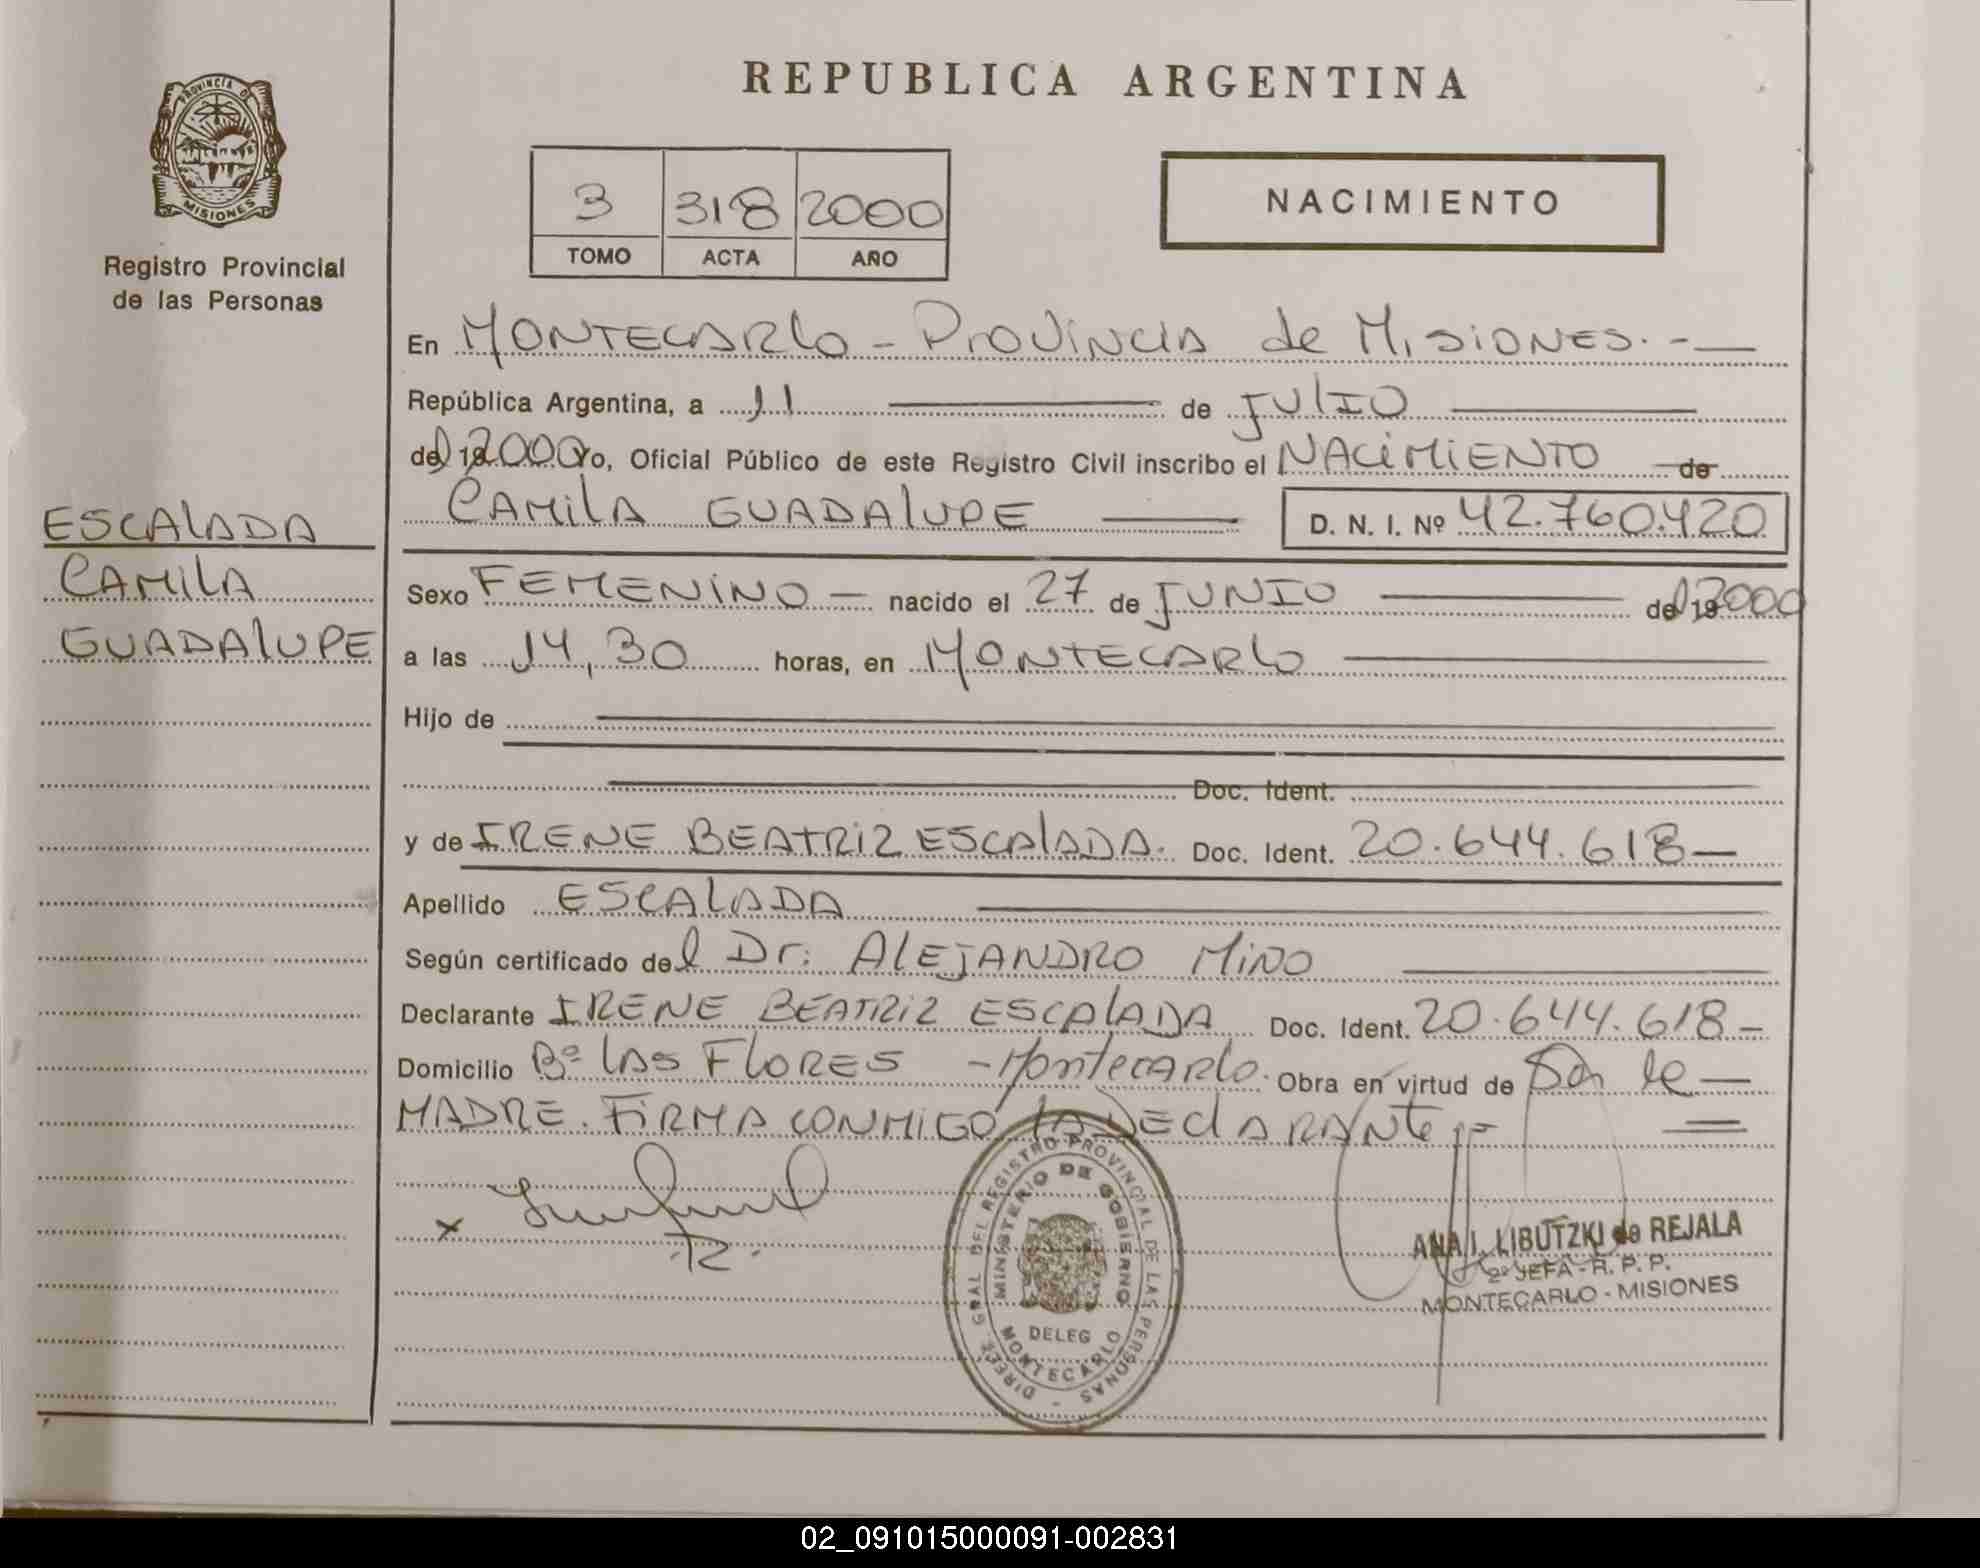 REPUBLICA ARGENTINA
PROVINCIA D
MISIONES
Registro Provincial
de las Personas
3 318 2000
TOMO ACTA AÑO
NACIMIENTO
En MONTECARLO - PROVINCIA de MISIONES.-
República Argentina, a 11 de JULIO
del 2000 Yo, Oficial Público de este Registro Civil inscribo el NACIMIENTO de
CAMILA GUADALUPE D. N. I. Nº 42.760.420
ESCALADA
CAMILA
GUADALUPE
Sexo FEMENINO - nacido el 27 de JUNIO del 2000
a las 14,30 horas, en MONTECARLO
Hijo de
Doc. Ident.
y de IRENE BEATRIZ ESCALADA. Doc. Ident. 20.644.618-
Apellido ESCALADA
Según certificado del Dr: ALEJANDRO MINO
Declarante IRENE BEATRIZ ESCALADA Doc. Ident. 20.644.618-
Domicilio Bº LAS FLORES - Montecarlo. Obra en virtud de
MADRE. FIRMA CONMIGO LA DECLARANTE
DIRECC. GRAL DEL REGISTRO PROVINCIAL DE LAS PERSONAS
MINISTERIO DE GOBIERNO
DELEG
MONTECARLO
ANA I. LIBUTZKI de REJALA
2º JEFA - R. P. P.
MONTECARLO - MISIONES
02_091015000091-002831